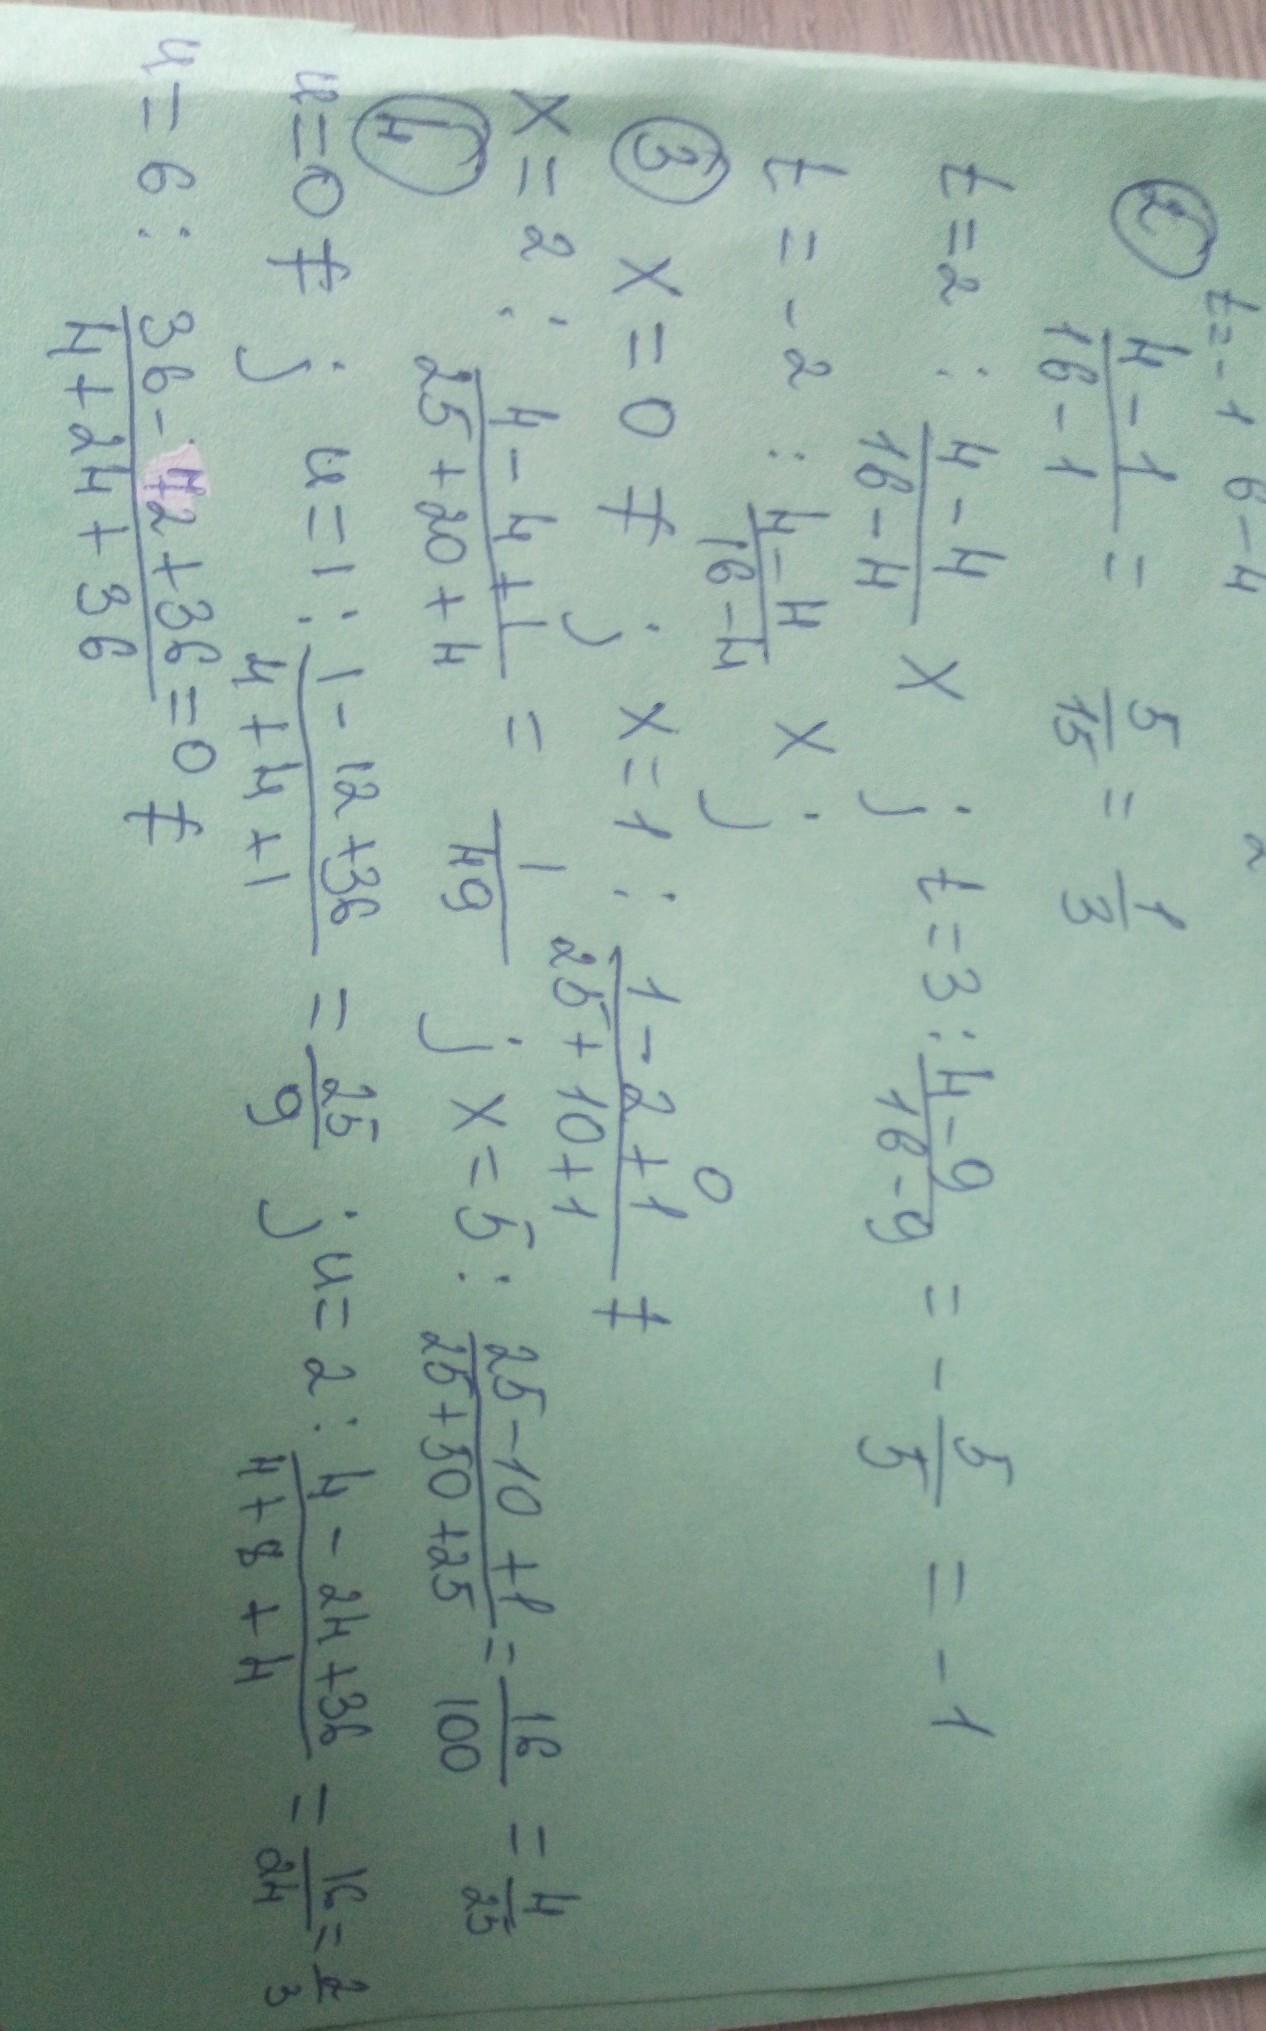 t=-1 6-4 2
② (4-1)/(16-1) = 5/15 = 1/3
t=2 : (4-4)/(16-4) x ; t=3 : (4-9)/(16-9) = -5/5 = -1
t=-2 : (4-4)/(16-4) x ;
③ x=0 ≠ ; x=1 : (1-2+1)/(25+10+1) 0 ≠
x=2 : (4-4+1)/(25+20+4) = 1/49 ; x=5 : (25-10+1)/(25+50+25) = 16/100 = 4/25
④
u=0 ≠ ; u=1 : (1-12+36)/(4+4+1) = 25/9 ; u=2 : (4-24+36)/(4+8+4) = 16/24 = 2/3
u=6 : (36-72+36)/(4+24+36) = 0 ≠